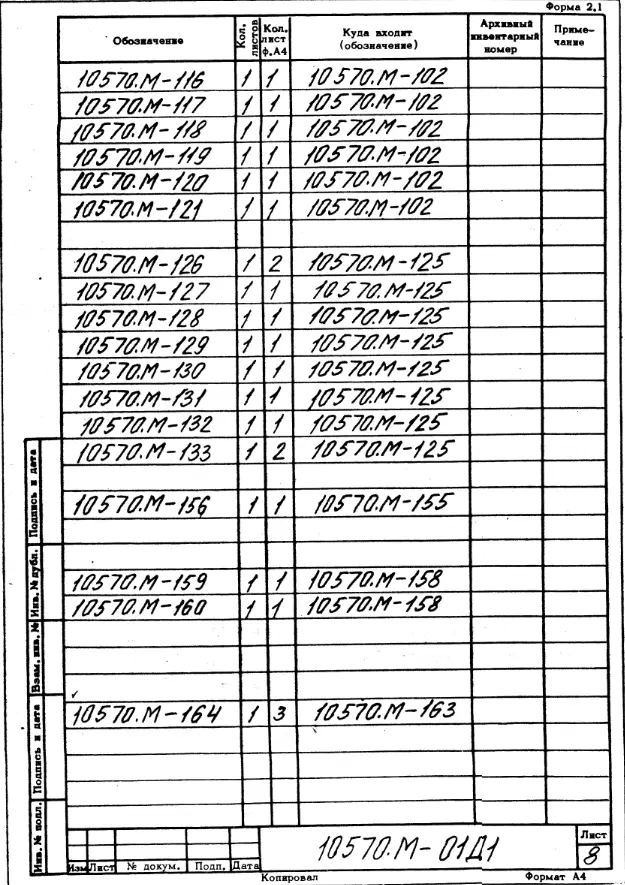 Форма 2.1
Обозначение Кол. листов Кол. лист ф.А4 Куда входит (обозначение) Архивный инвентарный номер Приме-чание
10570.М-116 1 1 10570.М-102
10570.М-117 1 1 10570.М-102
10570.М-118 1 1 10570.М-102
10570.М-119 1 1 10570.М-102
10570.М-120 1 1 10570.М-102
10570.М-121 1 1 10570.М-102
10570.М-126 1 2 10570.М-125
10570.М-127 1 1 10570.М-125
10570.М-128 1 1 10570.М-125
10570.М-129 1 1 10570.М-125
10570.М-130 1 1 10570.М-125
10570.М-131 1 1 10570.М-125
10570.М-132 1 1 10570.М-125
10570.М-133 1 2 10570.М-125
10570.М-156 1 1 10570.М-155
10570.М-159 1 1 10570.М-158
10570.М-160 1 1 10570.М-158
10570.М-164 1 3 10570.М-163
Подпись и дата
Инв. № дубл.
Взам. инв. №
Подпись и дата
Инв. № подл.
10570.М-01Д1
Лист
8
Изм Лист № докум. Подп. Дата
Копировал Формат А4